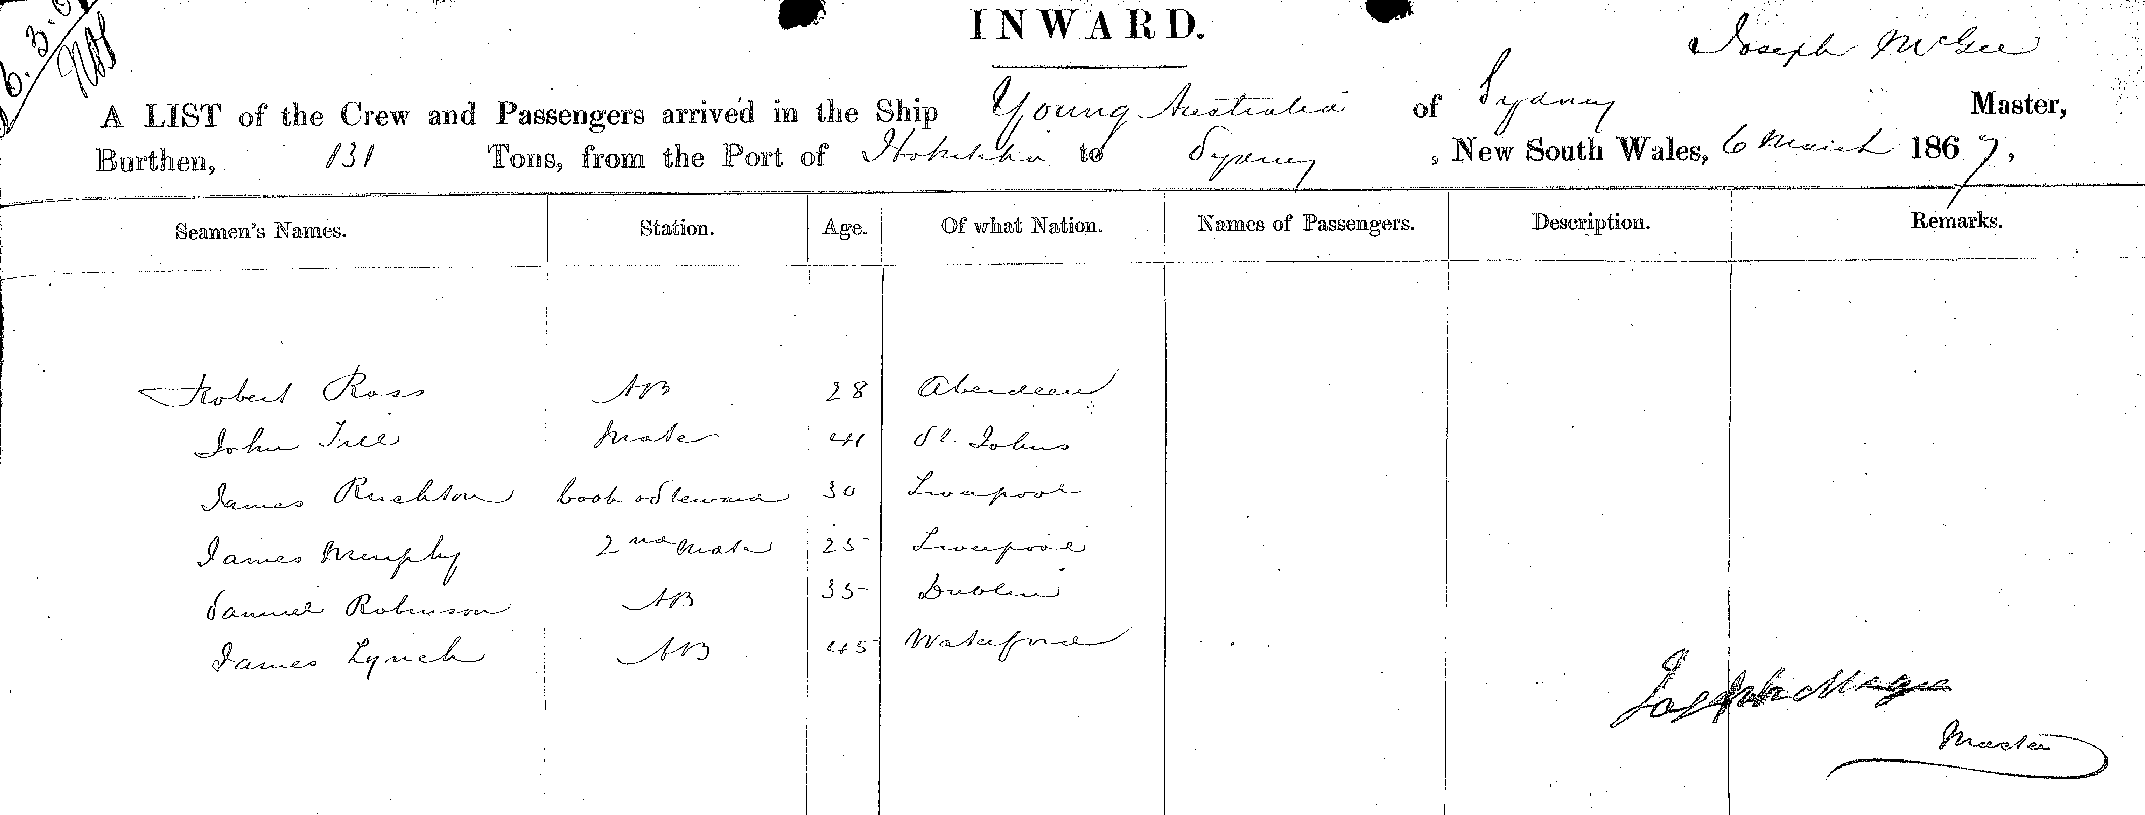 INWARD.
Joseph McGee
A LIST of the Crew and Passengers arrived in the Ship Young Australia of Sydney Master,
Burthen, 131 Tons, from the Port of Hokitika to Sydney, New South Wales, 6 March 1867,
Seamen's Names. Station. Age. Of what Nation. Names of Passengers. Description. Remarks.
Robert Ross AB 28 Aberdeen
John Tree Mate 41 St. Johns
James Rushton Cook & Steward 30 Liverpool
James Murphy 2nd Mate 25 Liverpool
Samuel Robinson AB 35 Dublin
James Lynch AB 45 Waterford
Joseph Magee
Master